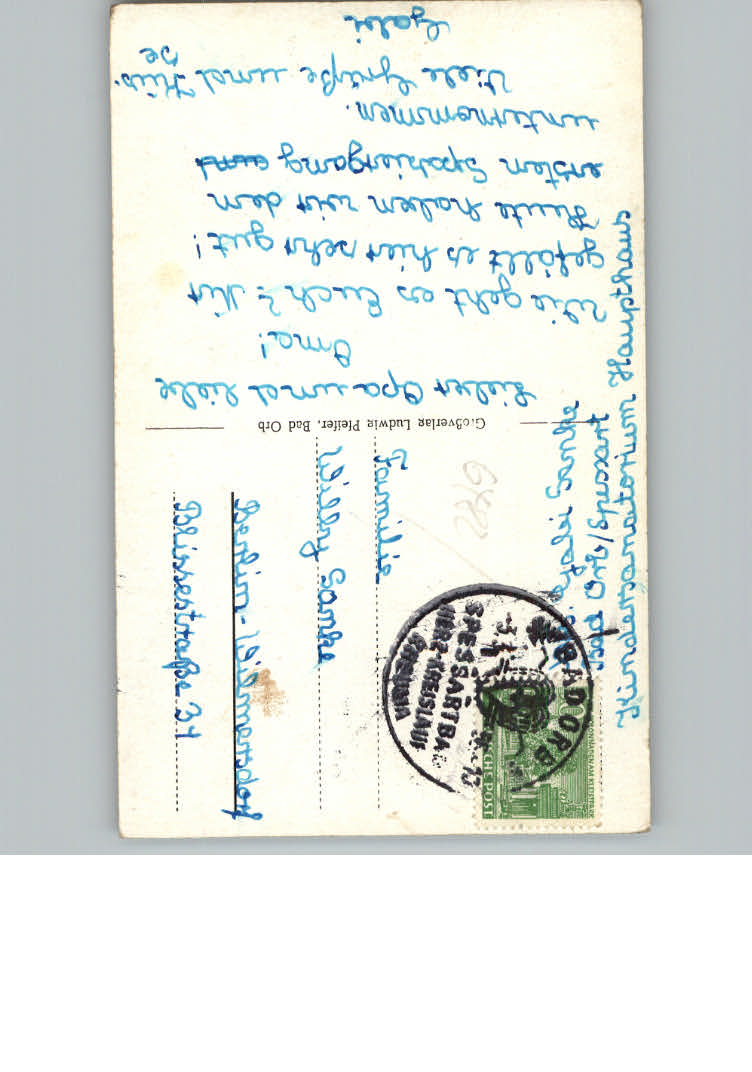 Lieber Opa und liebe
Oma!
Wie geht es Euch? Mir
gefällt es hier sehr gut!
Heute haben wir den
ersten Spaziergang und
unternommen.
Viele Grüße und Küs-
se
Gabi
Großverlag Ludwig Pfeifer, Bad Orb
Kindersanatorium Hauptmann
Bad Orb/Spessart
Familie
Willy Gamke
Berlin-Wilmersdorf
Blissestraße 31
BAD ORB
SPESSARTBAD
HERZ-KREISLAUF
RHEUMA